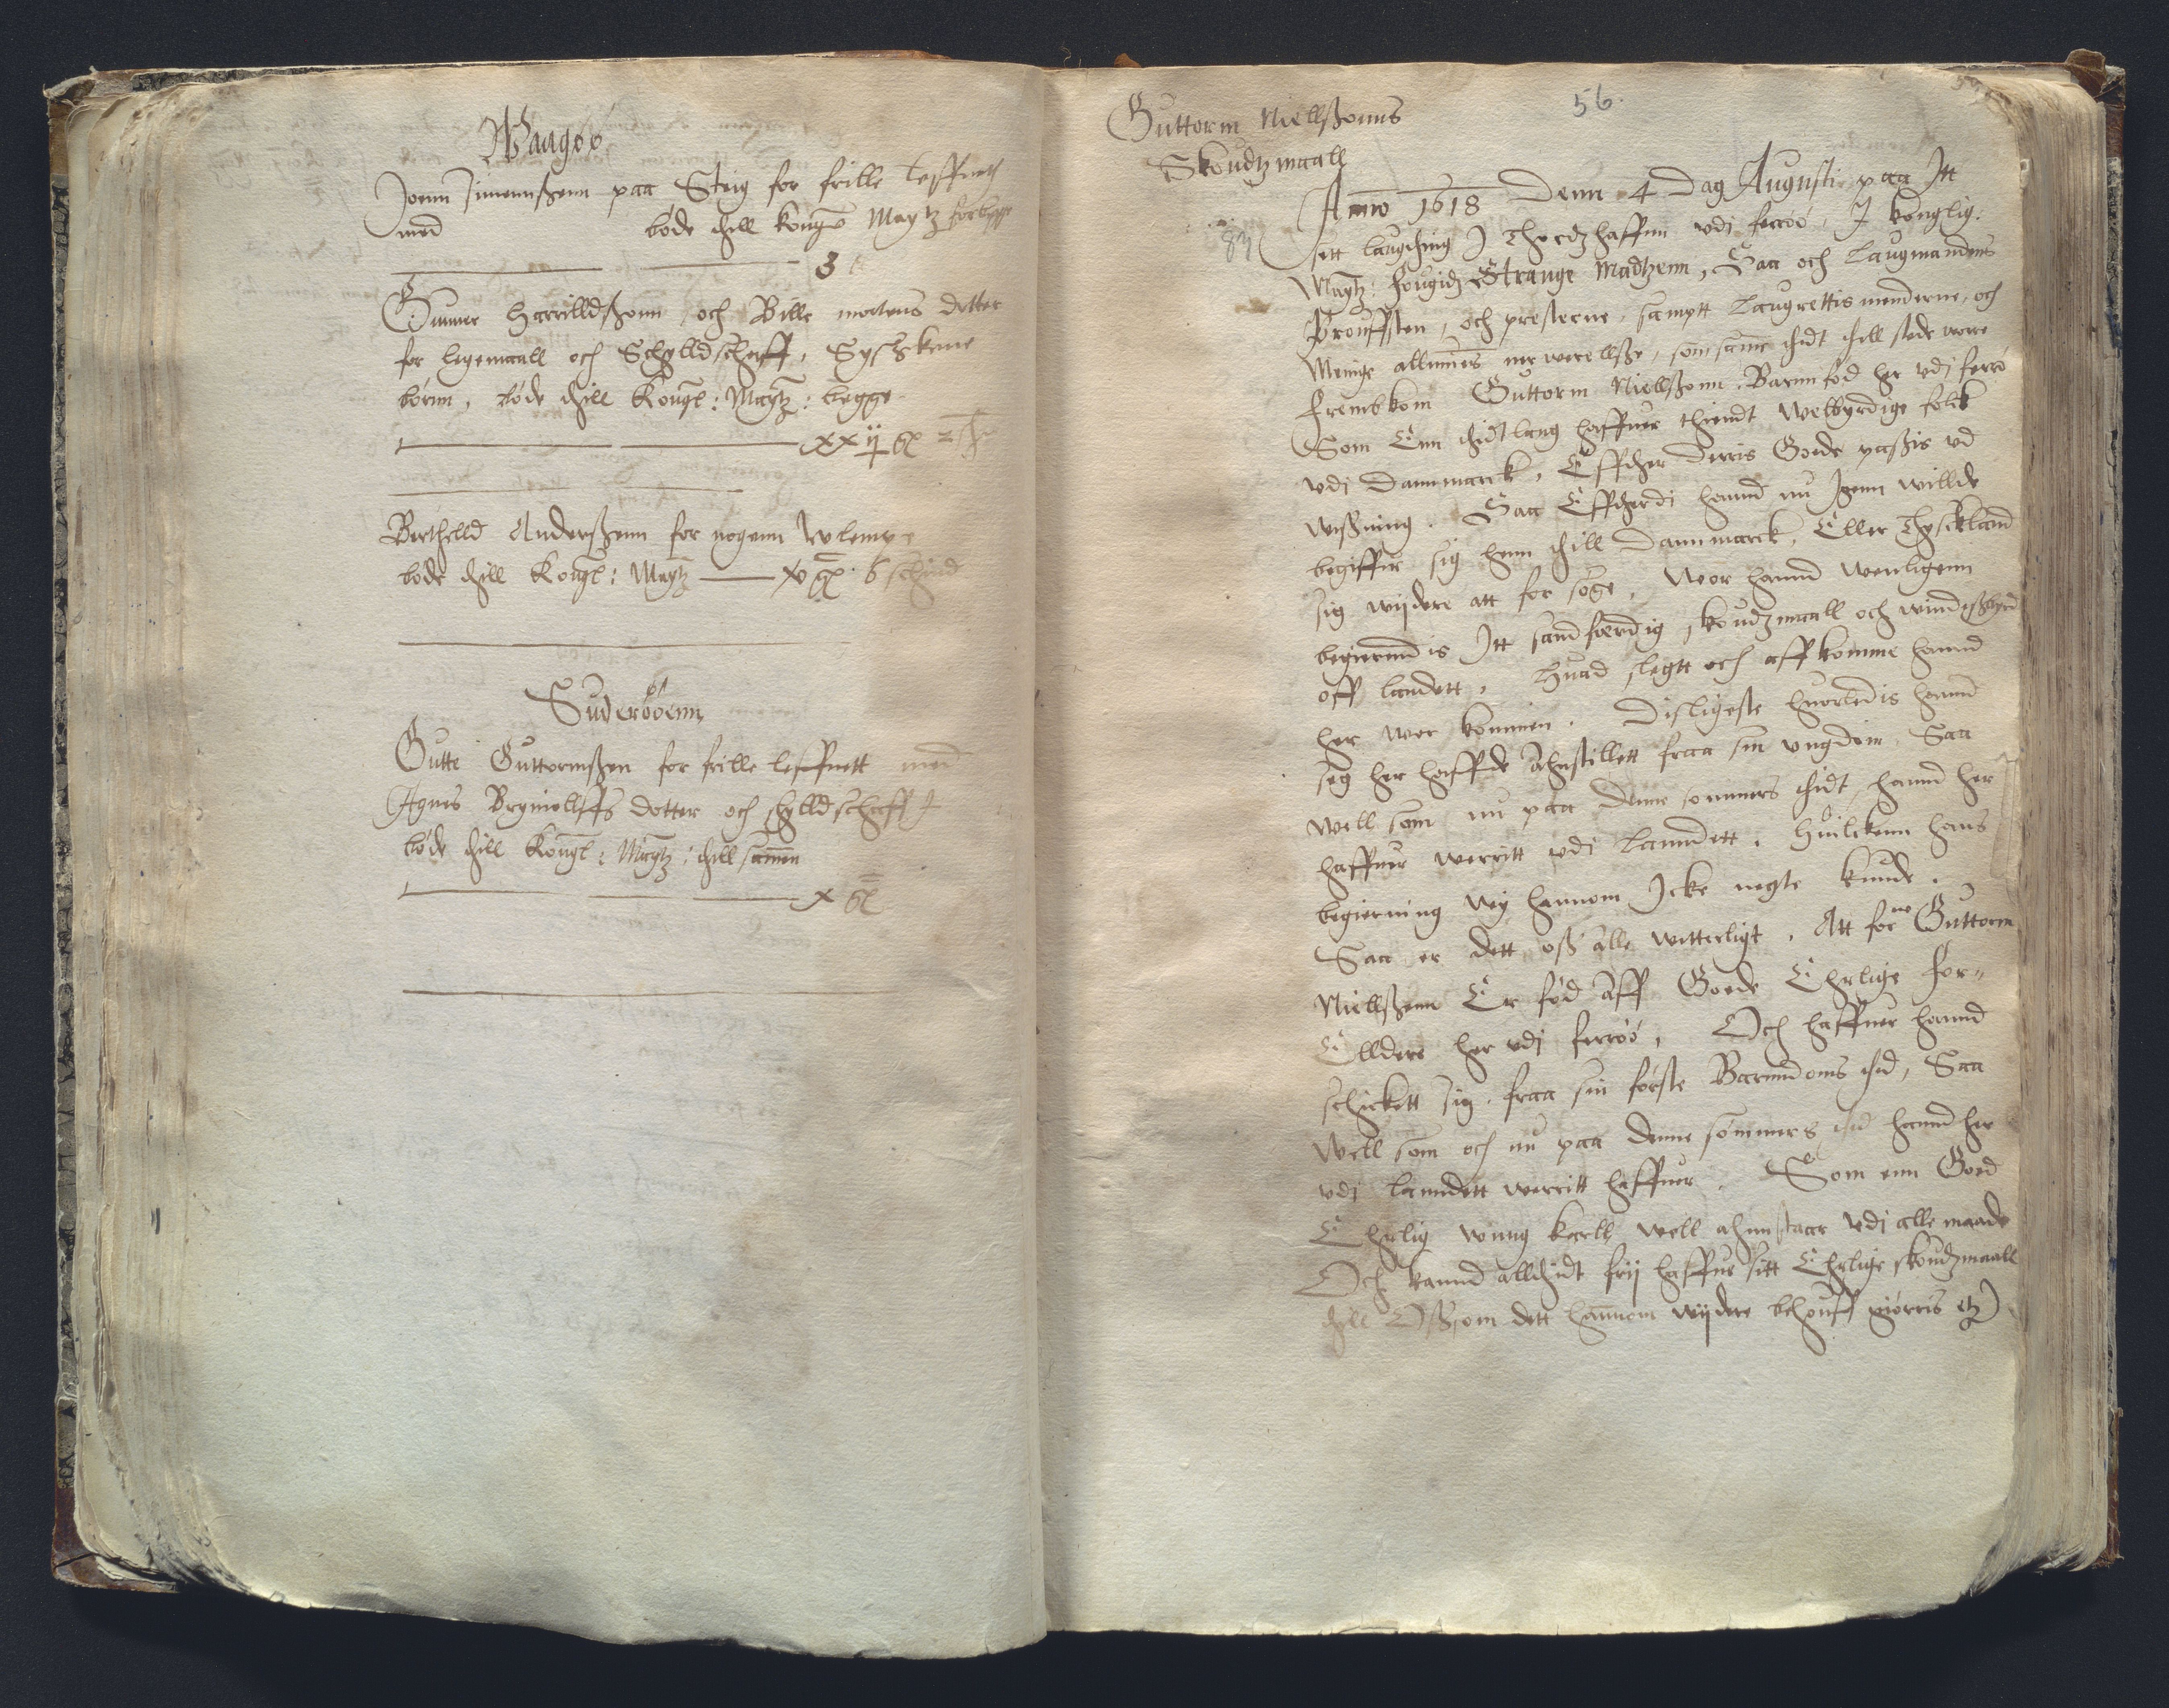 Waagöö
Joenn Simennßenn paa Steig for frille leffneth
med böde thill kong: Maytz forbygge
3
Gunner Harrilldßonn och Bille mortens dotter
for legemaall och Schylldschaff, Syschene
börnn, böde thill Kongl: Maytz: begge
xxij gl 2
Berthelld Anderßenn for nogenn wlempe
böde thill Kongl: Maytz xv gl 6 schind
Suderöoenn
Gutte Guttormßen for frille leffnett med
Agnes Bryniellffs dotter och schylldschaff
böde thill Kongl: Maytz: thill samen
x gl
56.
Guttorm Niellßonns
Skoudtzmaall
Anno 1618 Denn 4 Dag Augusti paa Itt
sett laugthing J Thordzhaffnn vdi ferröö, J konglig.
Maytz: fougidz Strange Madtzenn, Saa och Laugmandens
Prouffsten, och presterne, sampt Laugrettis menderne, och
Meinge allmues nerwerellße, som samme thidt thill stede wore
frembkom Guttorm Niellßonn, Barnnföd her vdi ferrö
Som Enn thidtlang haffuer thiendt welbyrdige folck
vdi Dannmarck, Effther Derris Goede paßis vd
wißning. Saa Efftherdi hannd nu Igenn willde
begiffue sig henn thill Dannmarck, Eller Thyskland
sig wijdere att for söge, Wor hannd wenligenn
begierinndis Itt sandfoerdig skoudzmaall och windißbyrd
off landett, Huad slegtt och affkomme hannd
her wor kommen. Disligeste huorledis hannd
seg her haffde ahnstillett fraa sin vngdom, Saa
well som nu paa denne sommers thidt, hannd her
haffuer werritt vdi Lanndett. Huilckenn hans
begierning wy hannom Icke negte kunde.
Saa er dett oß alle witterligt, Att forne Guttorm
Niellßenn Er föd aff Goede Ehrlige for-
Elldere her vdi ferröö, Och haffuer hannd
schickett sig, fraa sin förste Barnndoms thid, Saa
well som och nu paa denne sommers thid hannd her
vdi lanndett werritt haffuer. Som enn Goed
Ehrlig wung karll well ahnstaar vdi alle maade
Och kannd allthidt frij haffue sitt Ehrlige skoudzmaall
thill Oß, om dett hannom wijdere behouff giörris etz)